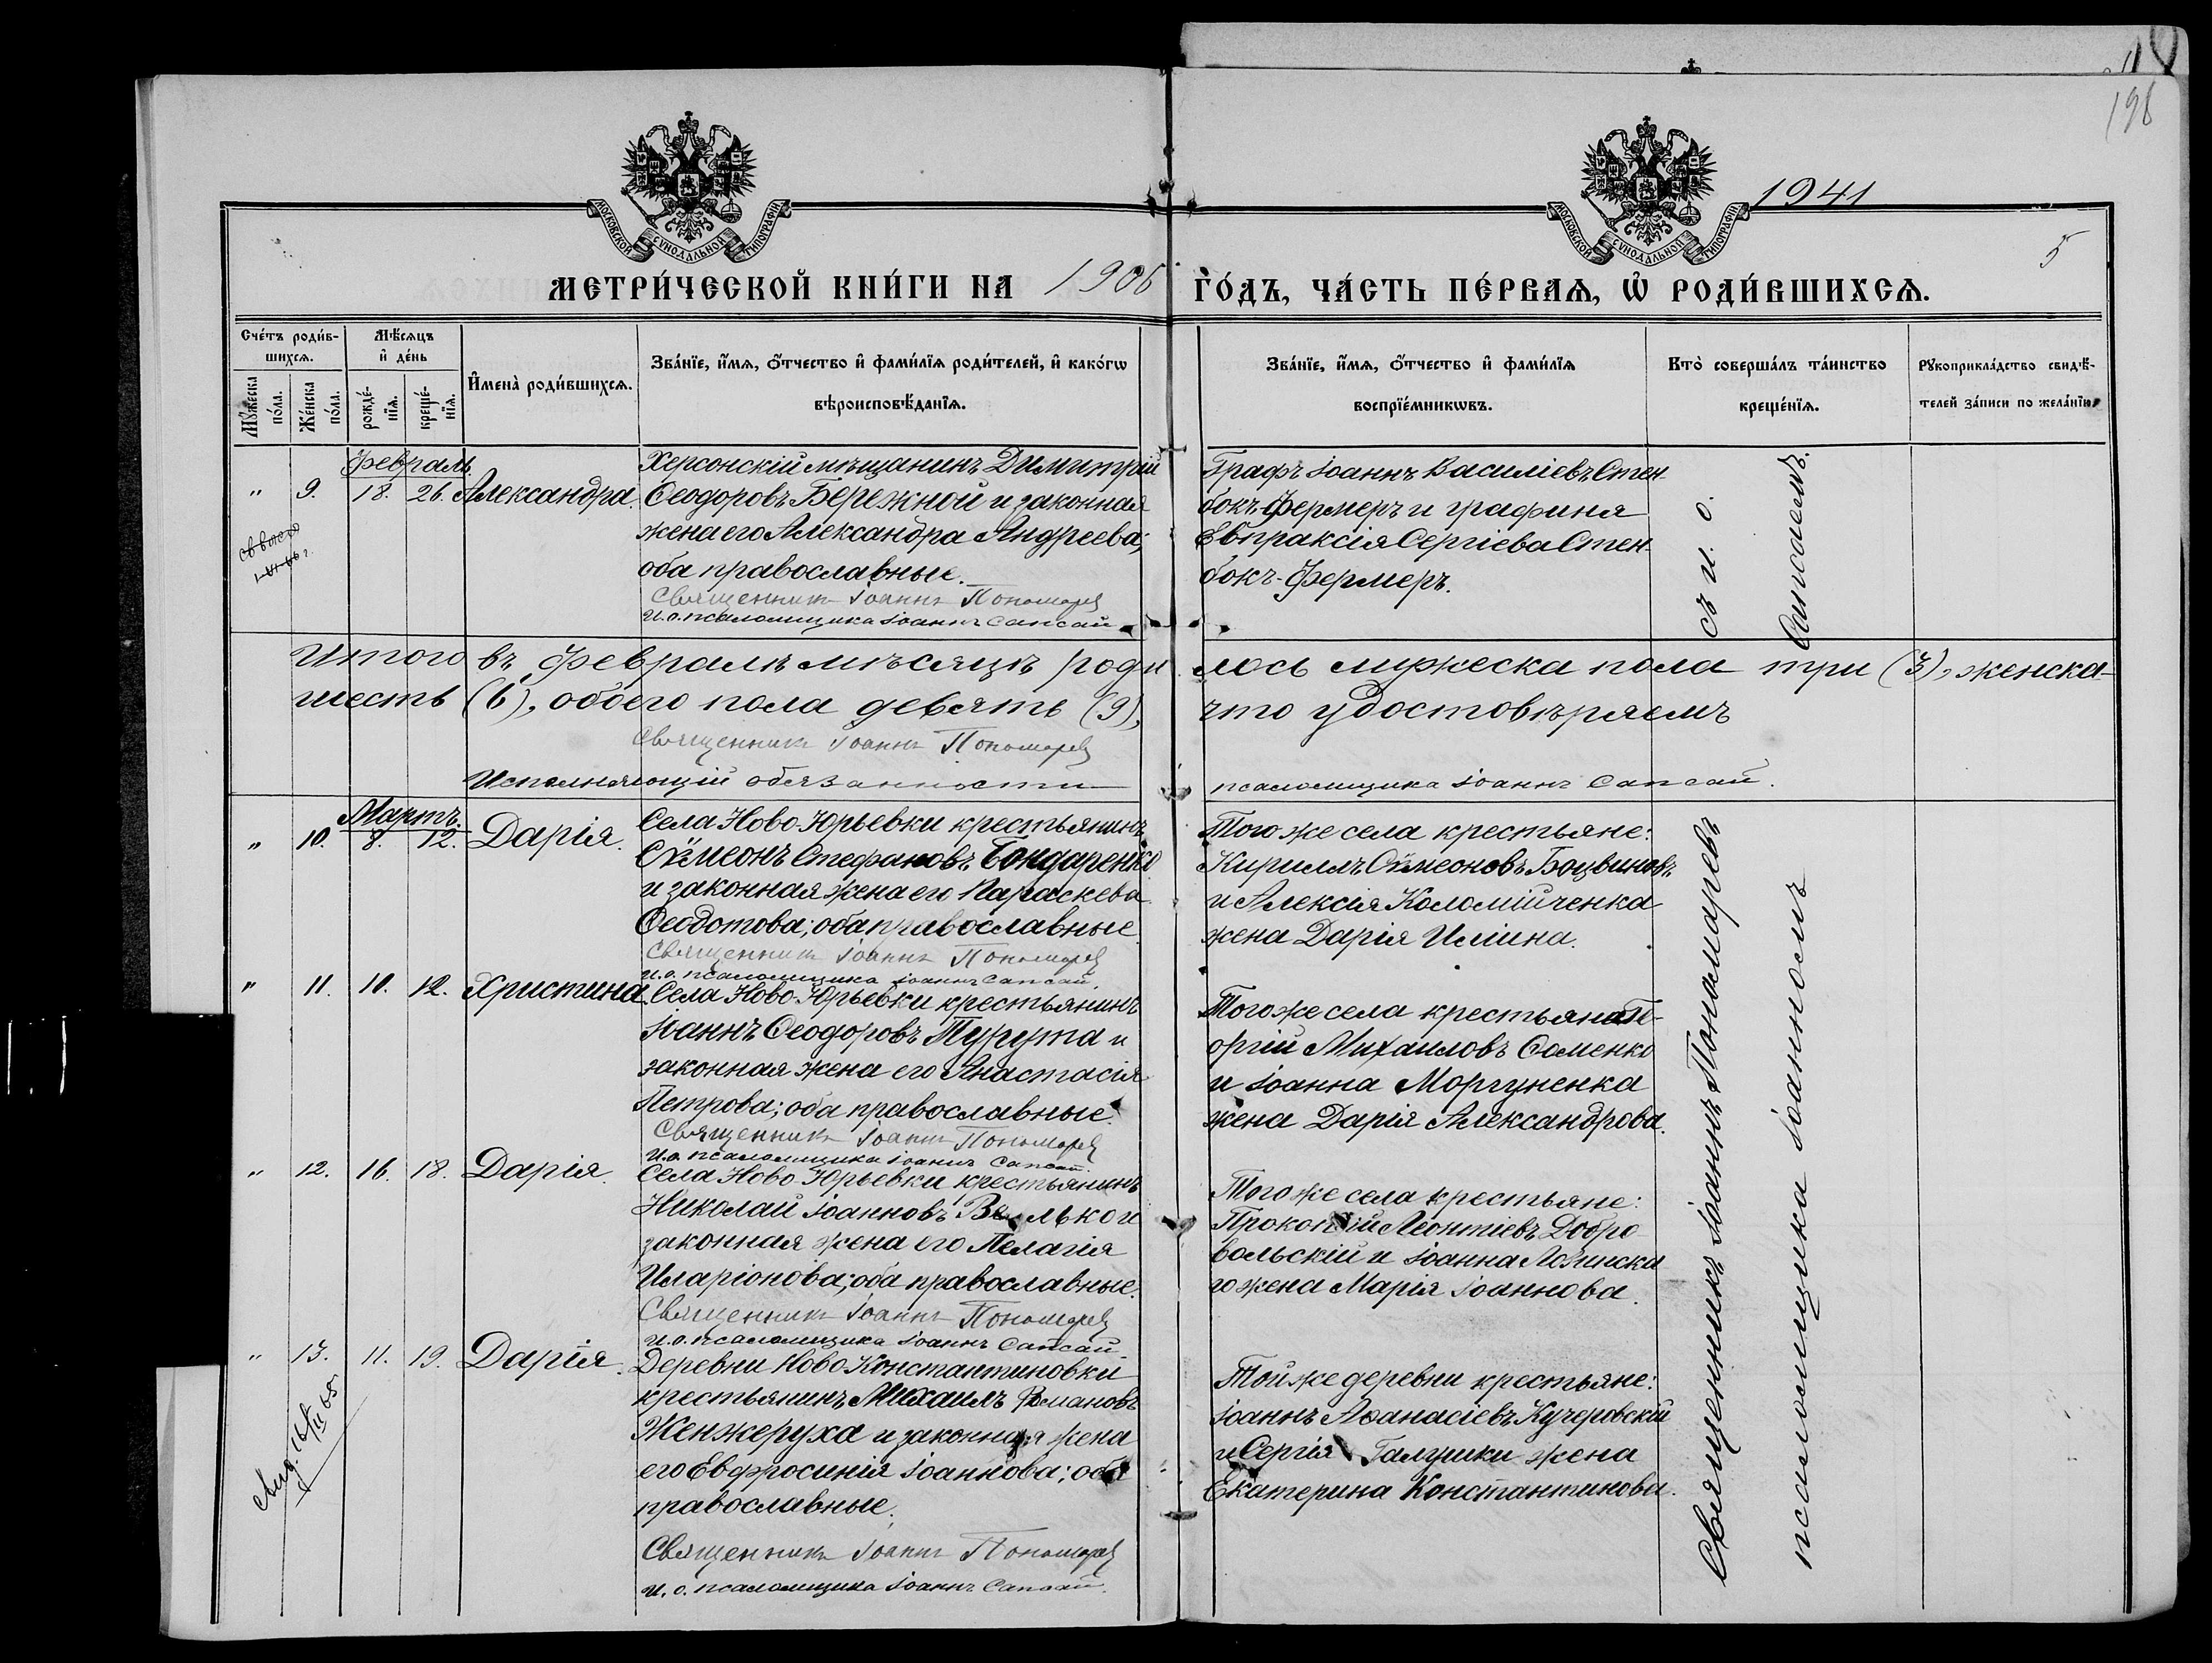 198
МОСКОВСКОЙ СѴНОДАЛЬНОЙ ТИПОГРАФІИ
МОСКОВСКОЙ СѴНОДАЛЬНОЙ ТИПОГРАФІИ
1941
5
МЕТРИ́ЧЕСКОЙ КНИ́ГИ НА 1906 ГО́ДЪ, ЧА́СТЬ ПЕ́РВАѦ, Ѡ҆ РОДИ́ВШИХСѦ.
Сче́тъ роди́в-
шихсѧ.
Мꙋ́жеска по́ла.
Же́нска по́ла.
Мѣ́сѧцъ
и҆ де́нь
рожде́-
нїѧ.
креще́-
нїѧ.
И҆мена̀ роди́вшихсѧ.
Зва́нїе, и҆́мѧ, ѻ҆́тчество и҆ фами́лїѧ роди́телей, и҆ како́гѡ
вѣроисповѣ́данїѧ.
Зва́нїе, и҆́мѧ, ѻ҆́тчество и҆ фами́лїѧ
воспрїе́мникѡвъ.
Кто̀ соверша́лъ та́инство
креще́нїѧ.
Рꙋкоприкла́дство свидѣ́-
телей за́писи по жела́нїю
Февраль.
" 9. 18. 26. Александра.
Херсонскій мѣщанинъ Димитрій
Ѳеодоровъ Бережной и законная
жена его Александра Андреева;
оба православные.
Священникъ Іоаннъ Пономарев
И.о. псаломщика Іоаннъ Сапсай
Графъ Іоаннъ Василіевъ Стен-
бокъ-Фермеръ и графиня
Евпраксія Сергіева Стен-
бокъ-Фермеръ.
съ и. о.
Сапсаемъ.
Итого въ февралѣ мѣсяцѣ роди лось мужеска пола три (3), женска-
шесть (6), обоего пола девять (9), что удостовѣряемъ
Священникъ Іоаннъ Пономарев
Исполняющій обязанности псаломщика Іоаннъ Сапсай.
Мартъ.
" 10. 8. 12. Дарія.
Села Ново-Юрьевки крестьянинъ
Сѵмеонъ Стефановъ Бондаренко
и законная жена его Параскева
Ѳеодотова; оба православные.
Священникъ Іоаннъ Пономарев
И.о. псаломщика Іоаннъ Сапсай.
Того же села крестьяне:
Кириллъ Сѵмеоновъ Боцвиновъ
и Алексія Коломійченка
жена Дарія Иліина.
" 11. 10. 12. Христина.
Села Ново-Юрьевки крестьянинъ
Іоаннъ Ѳеодоровъ Турута и
законная жена его Анастасія
Петрова; оба православные.
Священникъ Іоаннъ Пономарев
И.о. псаломщика Іоаннъ Сапсай.
Того же села крестьяне Ге-
оргій Михаиловъ Соменко
и Іоанна Моргуненка
жена Дарія Александрова.
" 12. 16. 18. Дарія.
Села Ново-Юрьевки крестьянинъ
Николай Іоанновъ
законная жена его Пелагія
Иларіонова; оба православные.
Священникъ Іоаннъ Пономарев
И.о. псаломщика Іоаннъ Сапсай.
Того же села крестьяне:
Прокопій Леонтіевъ Добро-
вольскій и Іоанна Лозинска
го жена Марія Іоаннова.
" 13. 11. 19. Дарія.
Деревни Ново-Константиновки
крестьянинъ Михаилъ Романовъ
Женжеруха и законная жена
его Евфросинія Іоаннова; оба
православные.
Священникъ Іоаннъ Пономарев
И.о. псаломщика Іоаннъ Сапсай.
Той же деревни крестьяне:
Іоаннъ Аѳанасіевъ Кучеровскій
и Сергія Галушки жена
Екатерина Константинова.
Священникъ Іоаннъ Пономаревъ
псаломщика Іоанномъ